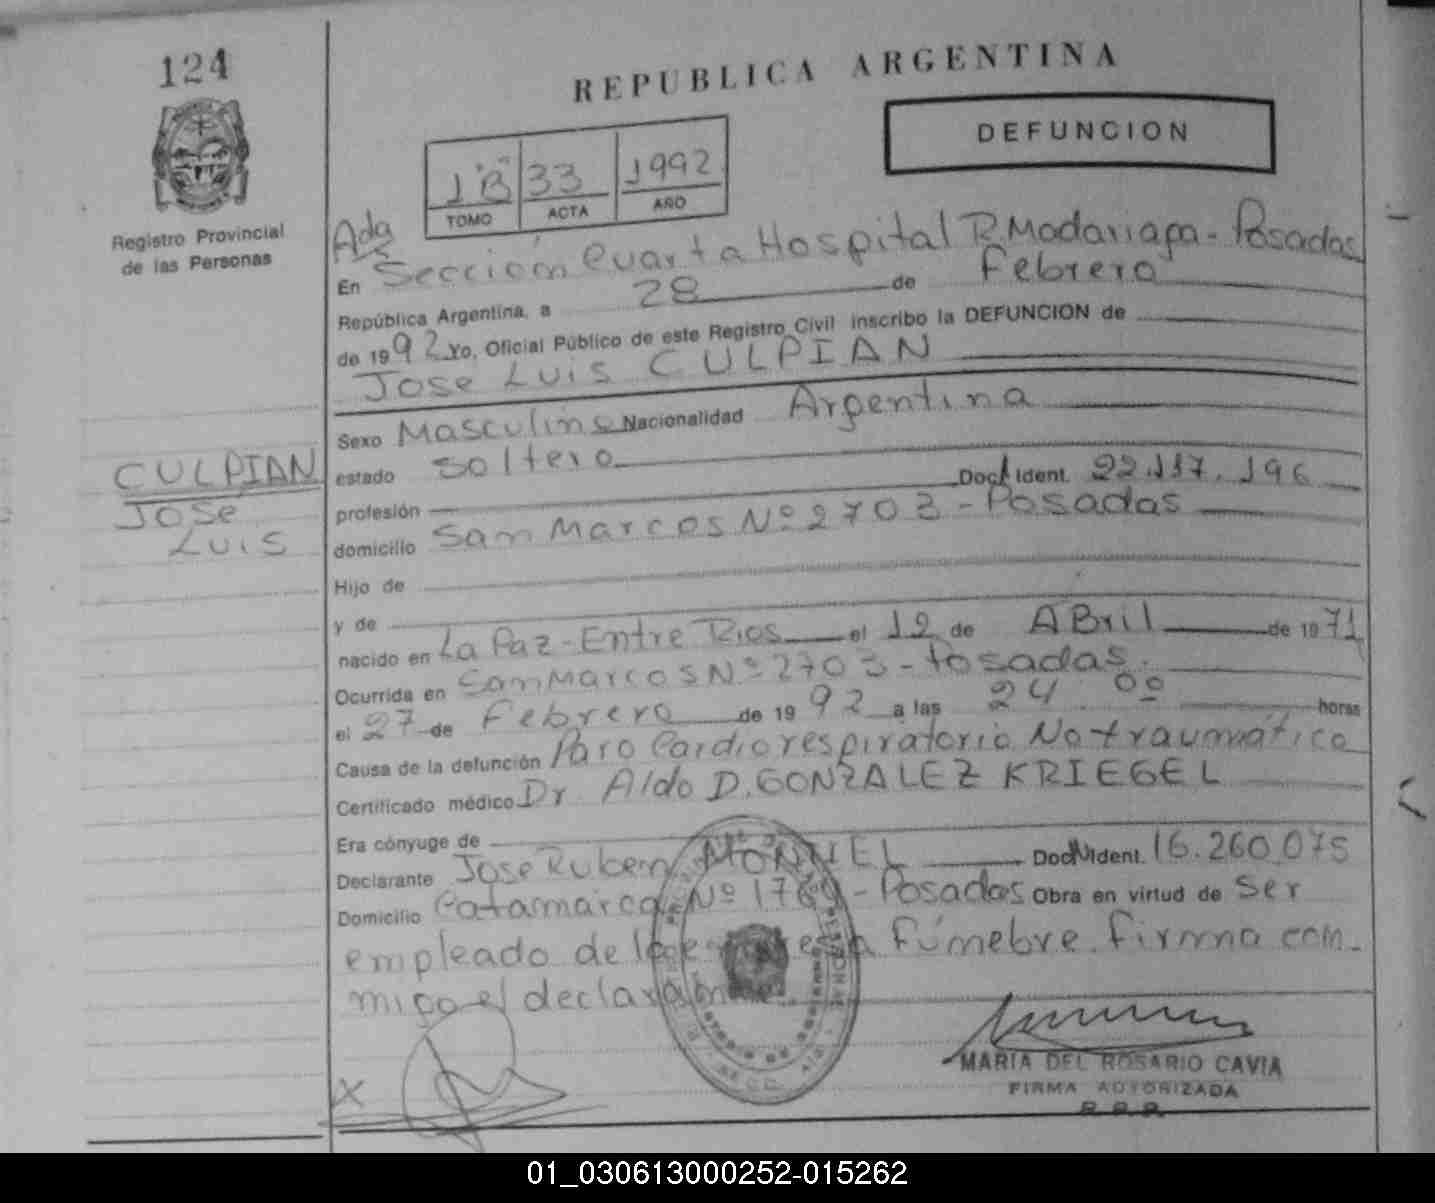 124
REPUBLICA ARGENTINA
DEFUNCION
1"B" 33 1992
TOMO ACTA AÑO
Registro Provincial
de las Personas
Ada
En Sección Cuarta Hospital R. Madariaga - Posadas
República Argentina, a 28 de Febrero
de 1992 Yo, Oficial Público de este Registro Civil inscribo la DEFUNCION de
Jose Luis CULPIAN
Sexo Masculino Nacionalidad Argentina
CULPIAN
Jose
Luis
estado Soltero
profesión Doc. Ident. 22.117.196
domicilio San Marcos Nº 2703 - Posadas
Hijo de
y de
nacido en La Paz - Entre Rios el 12 de ABril de 1971
Ocurrida en San Marcos Nº 2703 - Posadas.
el 27 de Febrero de 1992 a las 24 00 horas
Causa de la defunción Paro Cardiorespiratorio No traumático
Certificado médico Dr Aldo D. GONZALEZ KRIEGEL
Era cónyuge de
Declarante Jose Ruben Doc N Ident. 16.260.075
Domicilio Catamarca Nº 1769 - Posadas Obra en virtud de Ser
empleado de la Fúnebre. Firma con-
migo el declarante.
X
MARIA DEL ROSARIO CAVIA
FIRMA AUTORIZADA
R. P. P.
01_030613000252-015262